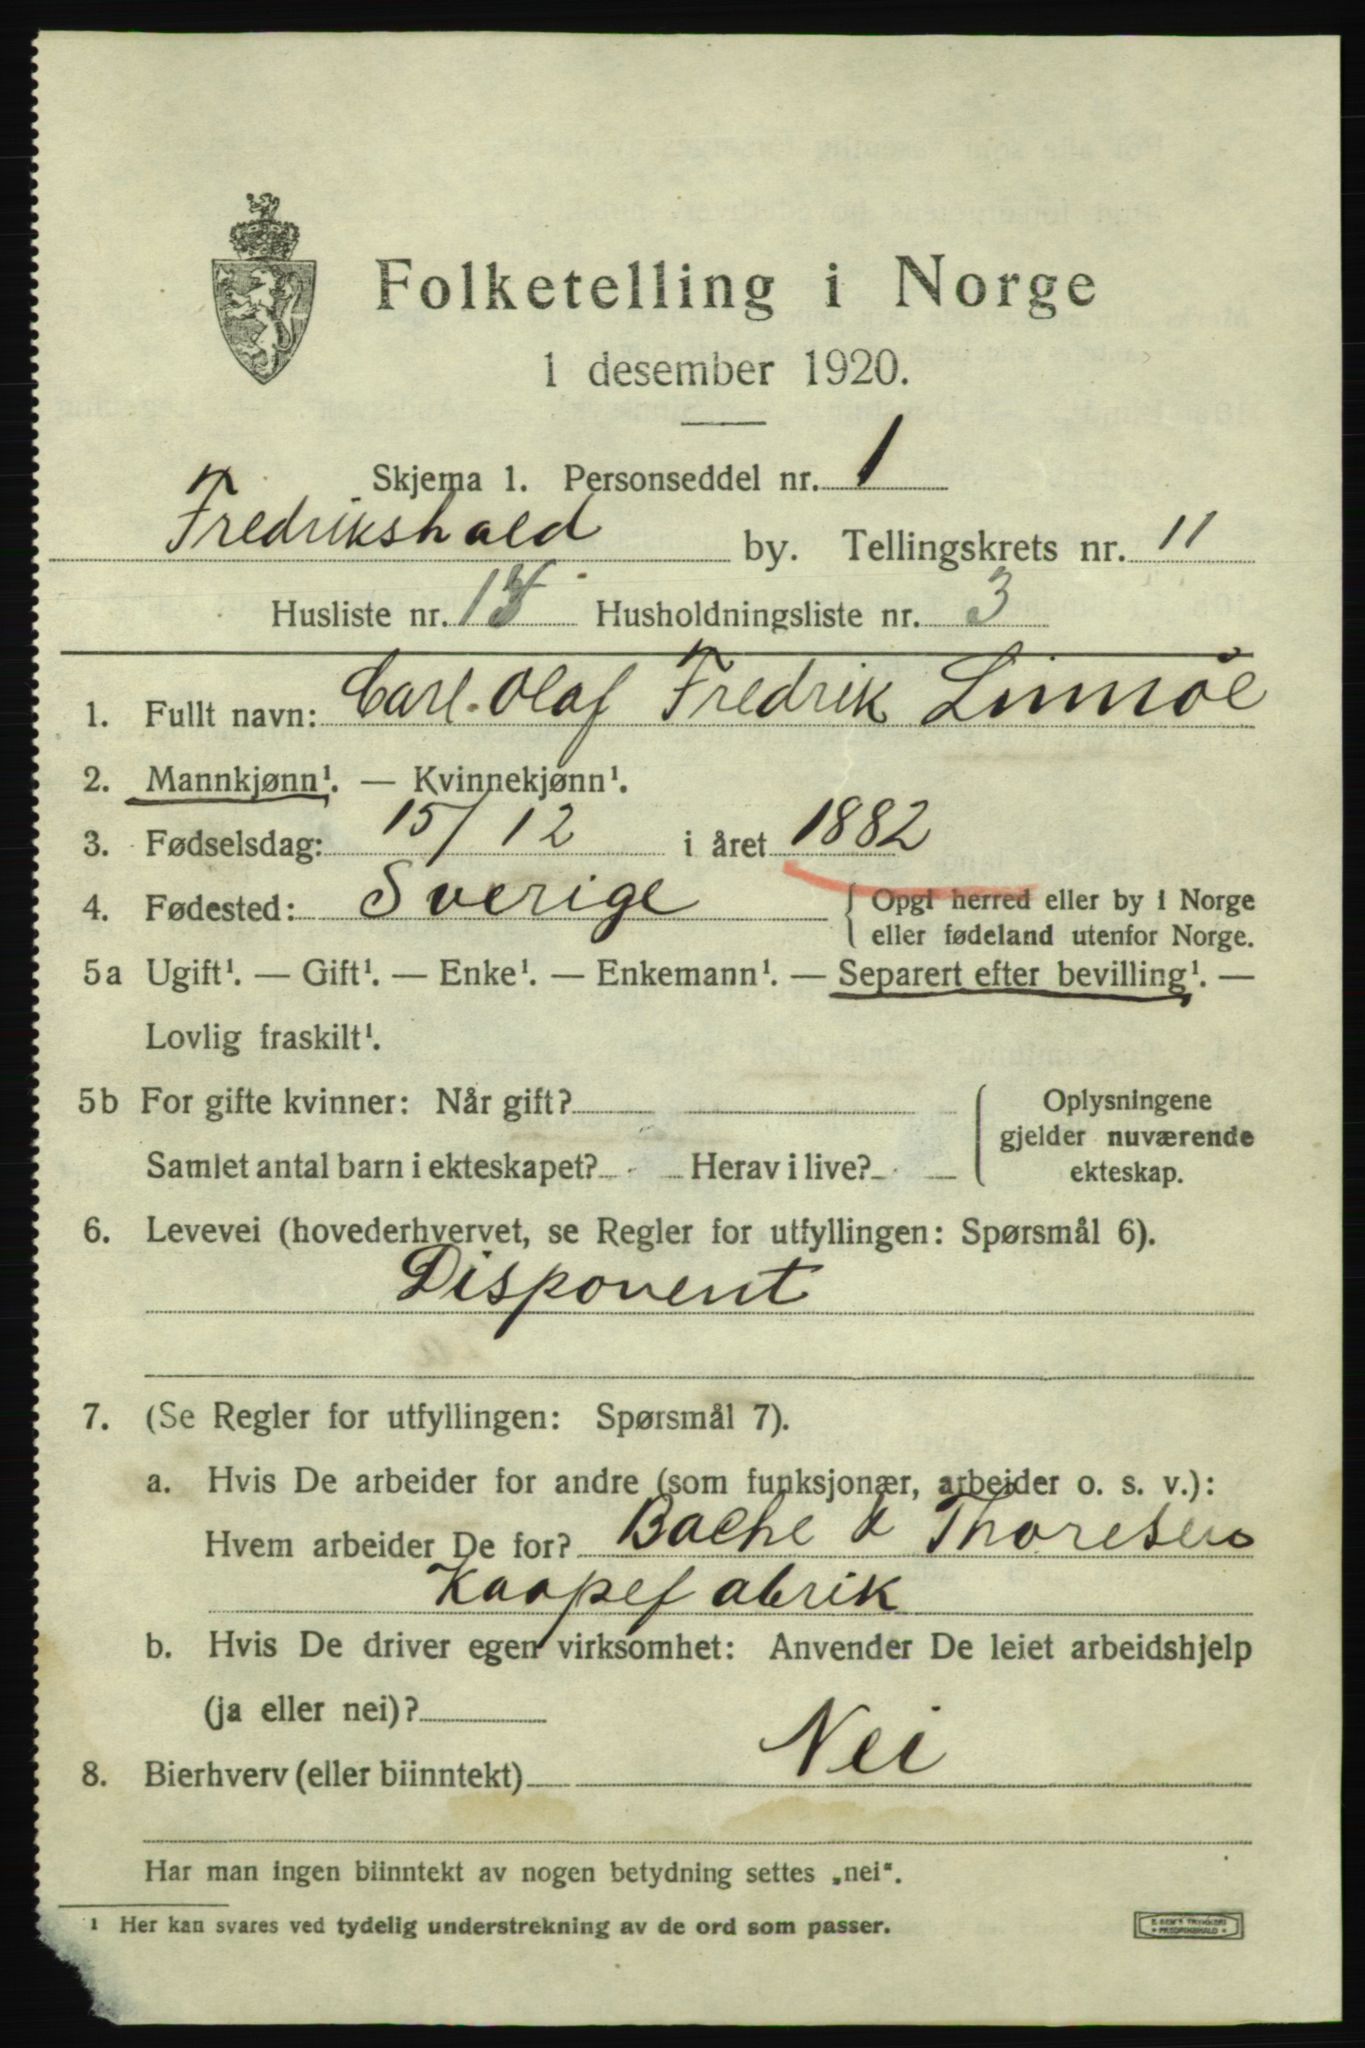 Folketelling i Norge
1 desember 1920.
Skjema 1. Personseddel nr. 1
Fredrikshald by. Tellingskrets nr. 11
Husliste nr. Husholdningsliste nr. 3
1. Fullt navn: Carl. Olaf Fredrik
2. Mannkjønn¹. — Kvinnekjønn¹.
3. Fødselsdag: 15/12 i året 1882
4. Fødested: Sverige { Opgi herred eller by i Norge
eller fødeland utenfor Norge.
5a Ugift¹. — Gift¹. — Enke¹. — Enkemann¹. — Separert efter bevilling¹. —
Lovlig fraskilt¹.
5b For gifte kvinner: Når gift? { Oplysningene
gjelder nuværende
Samlet antal barn i ekteskapet? Herav i live? ekteskap.
6. Levevei (hovederhvervet, se Regler for utfyllingen: Spørsmål 6).
Disponent
7. (Se Regler for utfyllingen: Spørsmål 7).
a. Hvis De arbeider for andre (som funksjonær, arbeider o. s. v.):
Hvem arbeider De for? Bache & Thoresens
Kaapefabrik
b. Hvis De driver egen virksomhet: Anvender De leiet arbeidshjelp
(ja eller nei)?
8. Bierhverv (eller biinntekt) Nei
Har man ingen biinntekt av nogen betydning settes „nei".
¹ Her kan svares ved tydelig understrekning av de ord som passer.